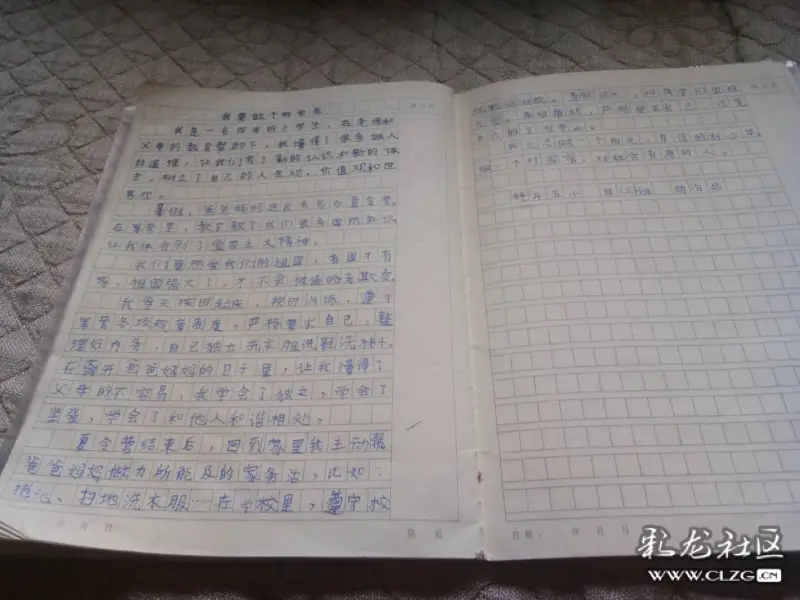 我要做个好学生
我是一名四年的小学生，在老师和
父母的教育帮助下，我懂得了很多做人
的道理，让我们有了新的认识和新的体
树立了自己的人生观。价值观和世
界观。
暑假，爸爸妈妈送我去参加夏令营，
在军营里，教官教了我们很多国防知识，
让我体会到了爱国主义精神。
我们要热爱我们的祖国，有国才有
家，祖国强大了，才不会被侵略者欺负。
我每天按时起床，按时训练，遵守
军营各项规章制度。严格要求自己，整
理好内务，自己独立洗衣服洗鞋洗袜子。
在离开爸爸妈妈的日子里，让我懂得了
父母的不容易，我学会了独立，学会了
坚强，学会了和他人和谐相处。
夏令营结束后，回到家里我主动帮
爸爸妈妈做力所能及的家务活，比如：
拖地、扫地洗衣服……在学校里，遵守校
年 月 日
第 页
严格要求自己
做一个阳光、自信的
做一个对国家，对社会有用的人。
牡丹五小
日期： 年 月 日
彩龙社区
WWW.CLZG.CN